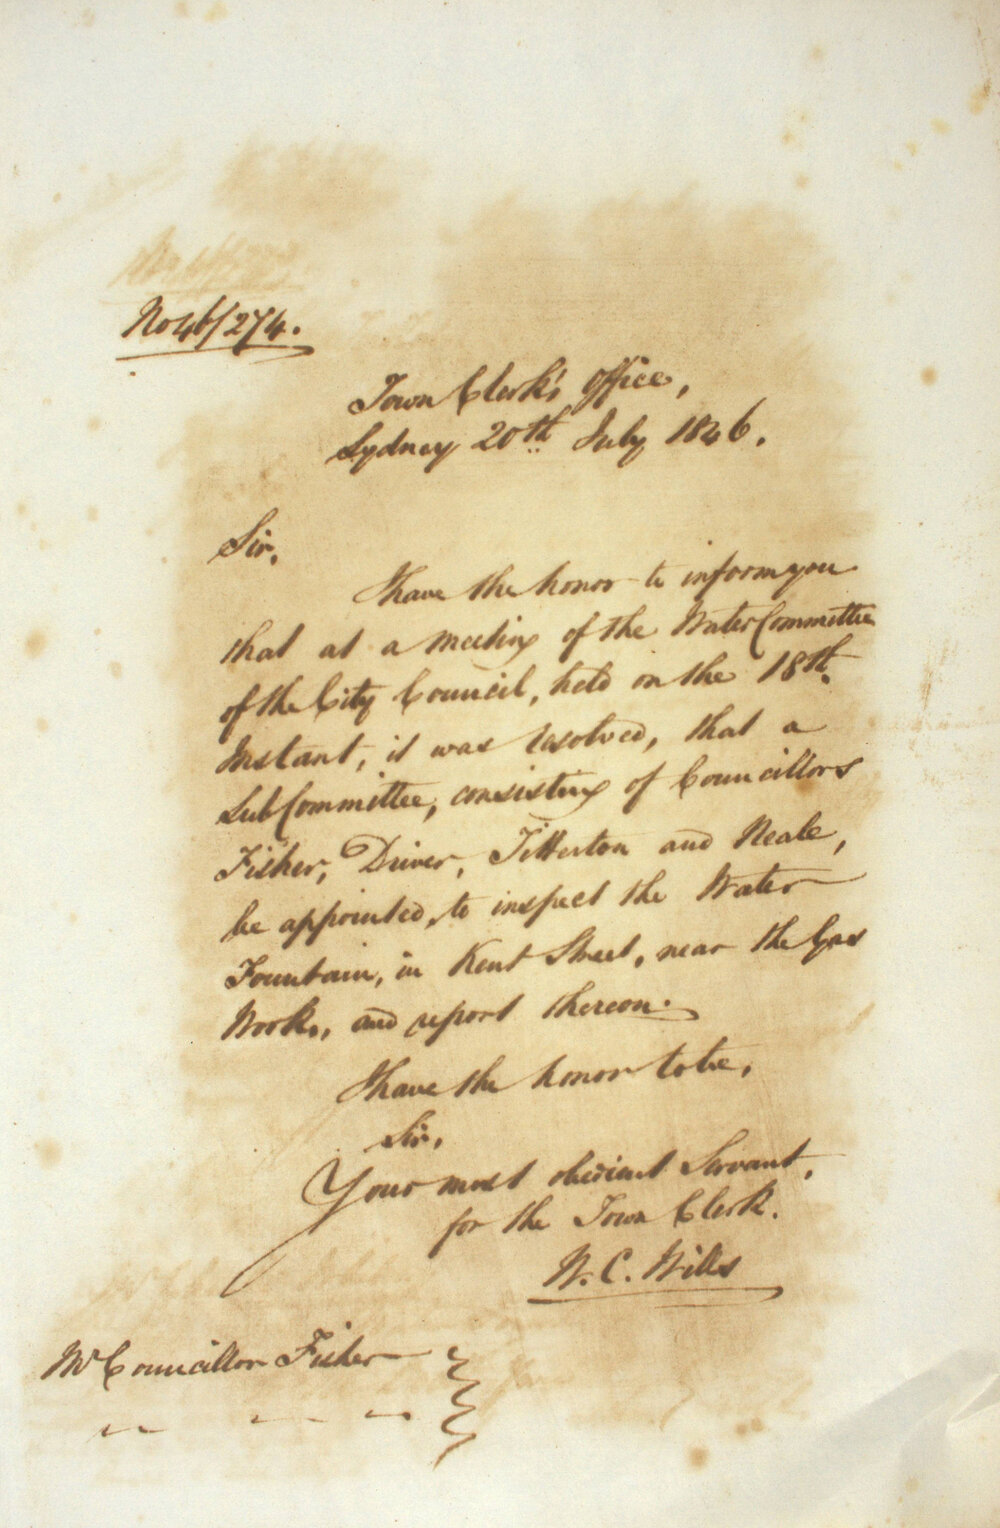 No 46/274.
Town Clerk's Office,
Sydney 20th July 1846.
Sir,
I have the honor to inform you
that at a meeting of the Water Committee
of the City Council, held on the 18th
Instant, it was resolved, that a
Sub Committee, consisting of Councillors
Fisher, Driver, Titterton and Neale,
be appointed, to inspect the Water
Fountain, in Kent Street, near the Gas
Works, and report thereon.
I have the honor to be,
Sir,
Your most obedient Servant,
for the Town Clerk.
W. C. Wills
Mr Councillor Fisher